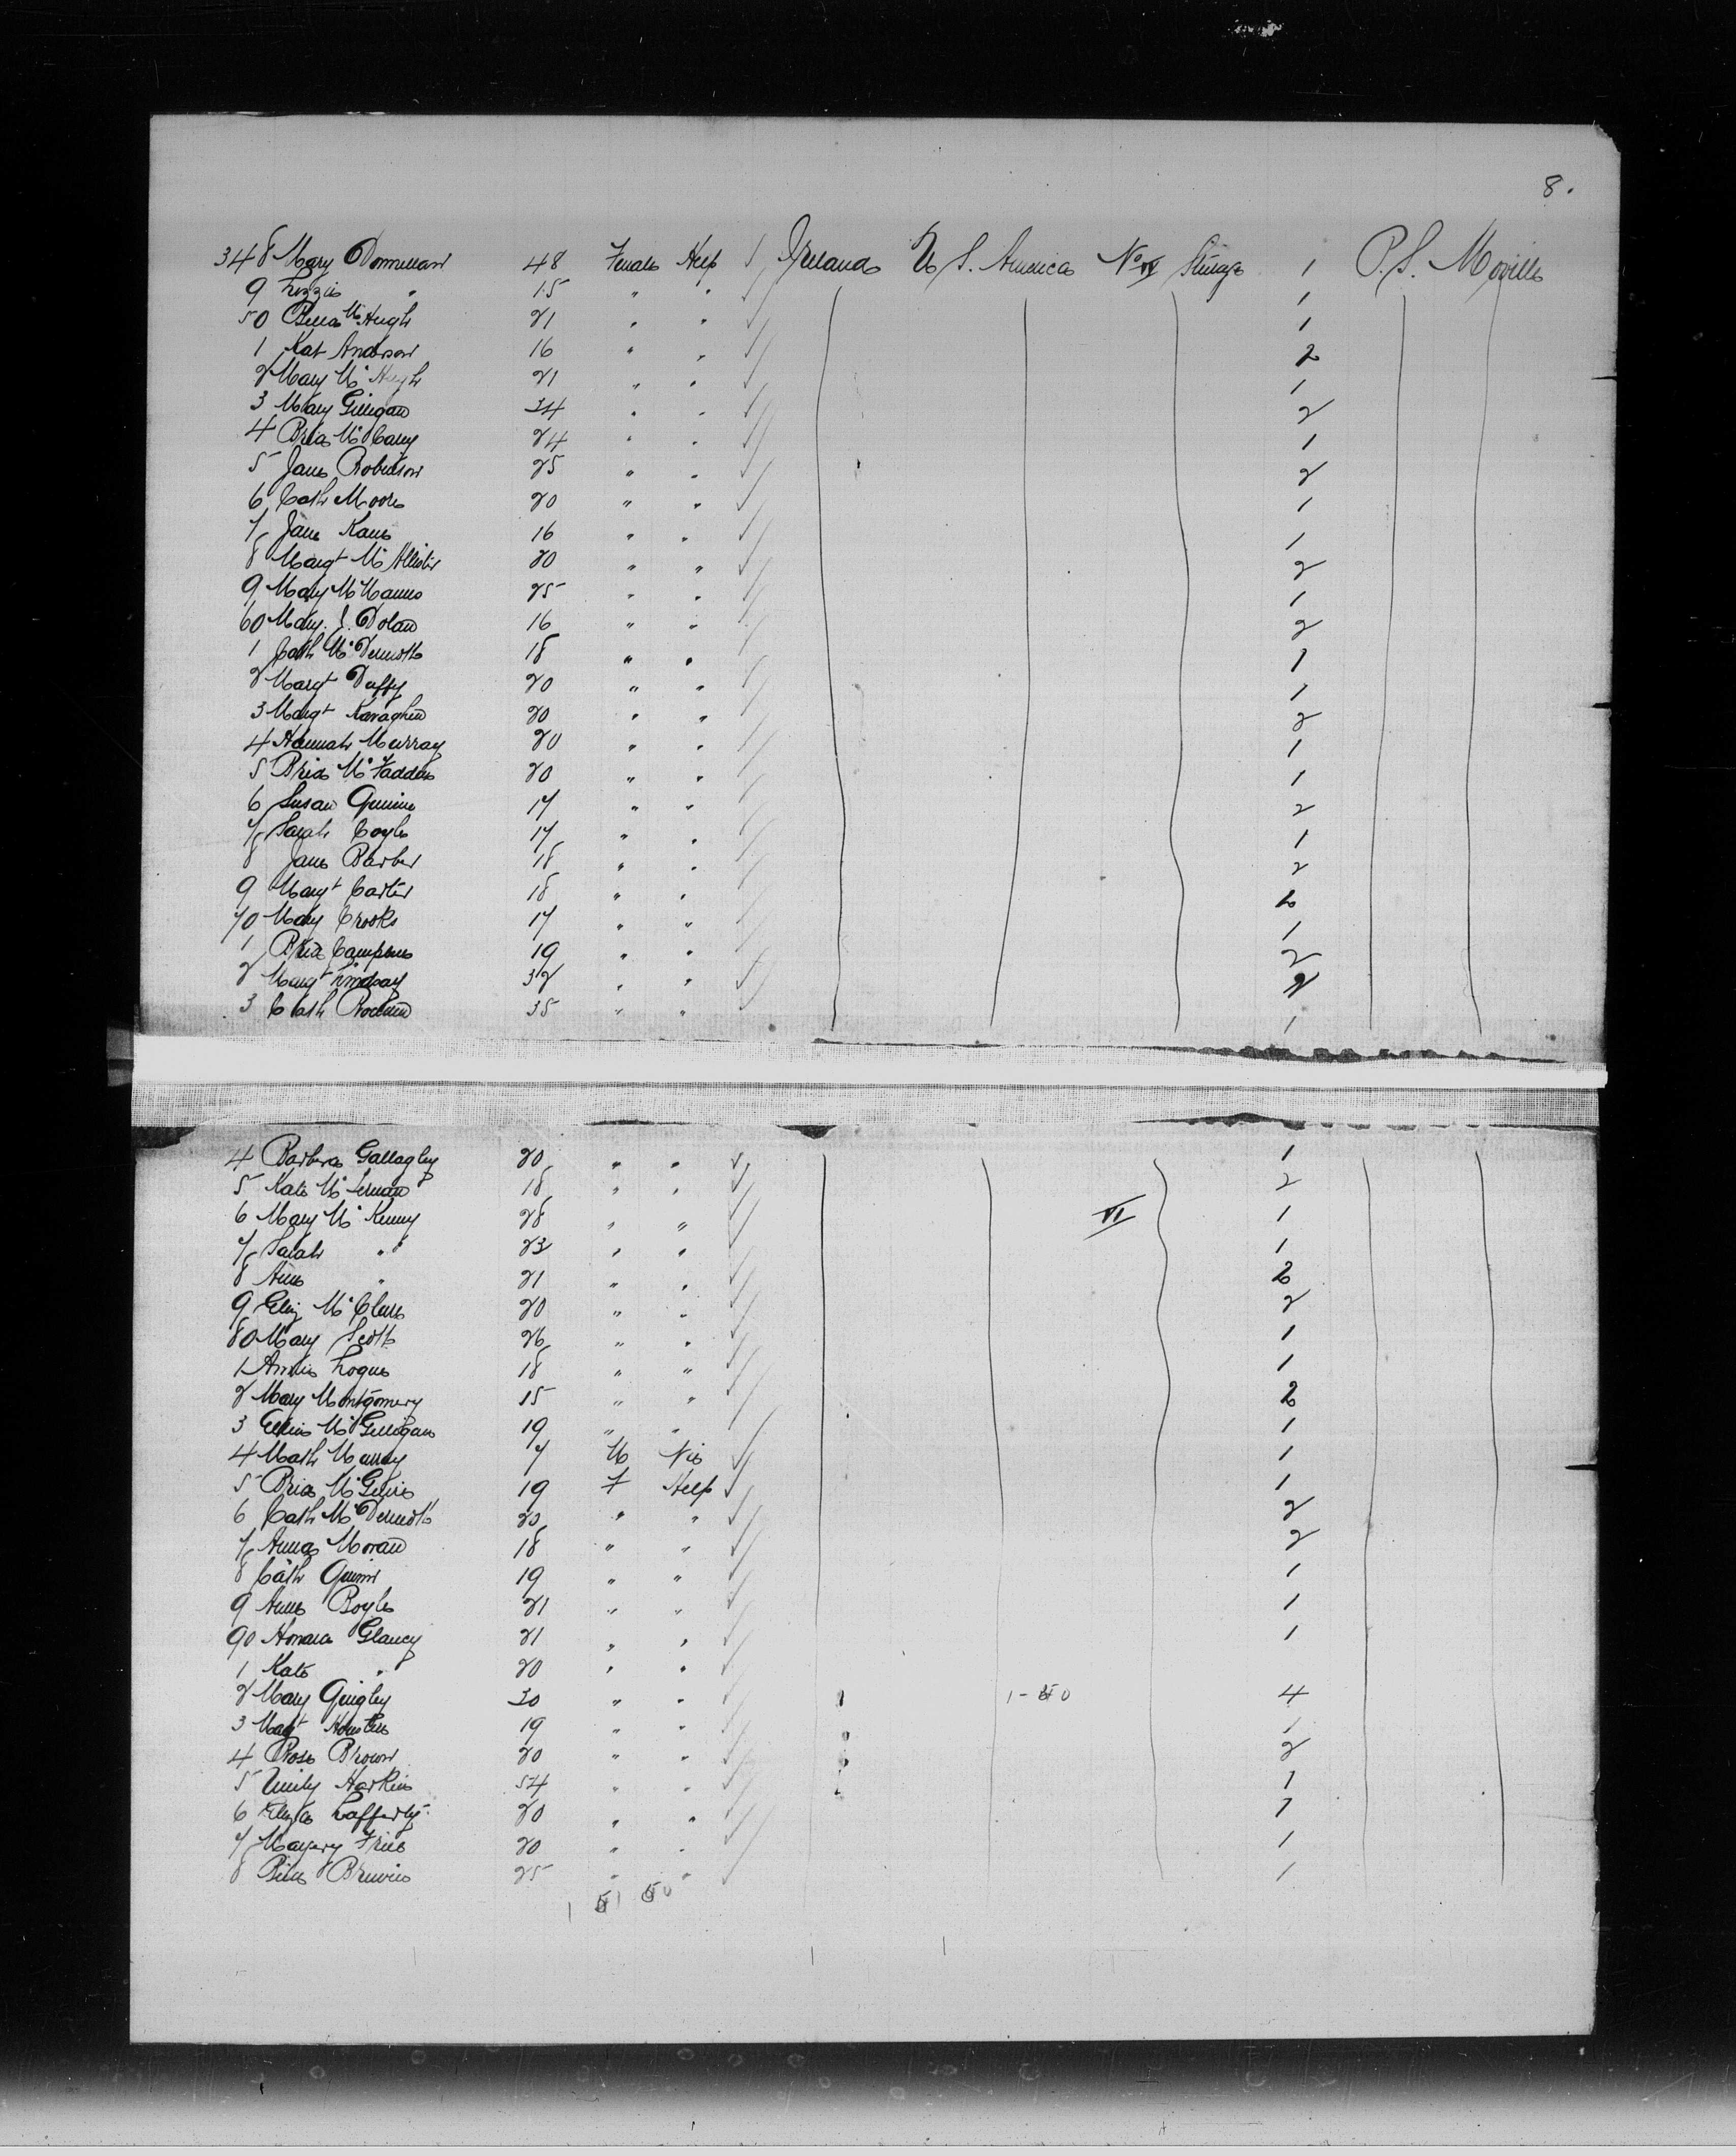 8.
348 Mary Donnellan 48 Female Help Ireland U S. America No Steerage 1 P.S. Moville
9 Lizzie " 15 " " 1
50 Bella McHugh 21 " " 1
1 Kat Anderson 16 " " 2
2 Mary McHugh 21 " " 1
3 Mary Gilligan 34 " " 2
4 Brid McCarey 24 " " 1
5 Jane Robinson 25 " " 2
6 Cath Moore 20 " " 1
7 Jane Kane 16 " " 1
8 Margt McAllister 20 " " 2
9 Mary McManus 25 " " 1
60 Mary J. Dolan 16 " " 2
1 Cath McDermott 18 " " 1
2 Margt Duffy 20 " " 1
3 Margt Kavaghen 20 " " 2
4 Hannah Murray 20 " " 1
5 Brid McFadden 20 " " 1
6 Susan Quinn 17 " " 2
7 Sarah Coyle 17 " " 1
8 Jane Barber 18 " " 2
9 Margt Carter 18 " " 2
70 Mary Crooks 17 " " 1
1 Brid Campbell 19 " " 2
2 Margt Lindsay 32 " " 2
3 Cath Rodden 35 " " 1
4 Barbera Gallagher 20 " " 1
5 Kate McLernan 18 " " 2
6 Mary McKenny 28 " " VI 1
7 Sarah " 23 " " 1
8 Ann " 21 " " 2
9 Eliz McClure 20 " " 2
80 Mary Scott 26 " " 1
1 Annie Logue 18 " " 1
2 Mary Montgomery 15 " " 2
3 Ellen McGilligan 19 " " 1
4 Math Murray 7 M Nil 1
5 Brid McGuire 19 F Help 1
6 Cath McDermott 20 " " 2
7 Anna Moran 18 " " 2
8 Cath Quinn 19 " " 1
9 Anne Boyle 21 " " 1
90 Honara Glancy 21 " " 1
1 Kate " 20 " "
2 Mary Quigley 30 " " 4
3 Margt 19 " " 1
4 Rose Brown 20 " " 2
5 Unity Harkin 54 " " 1
6 Eliza Lafferty 20 " " 1
7 Majery Friel 20 " " 1
8 25 " " 1